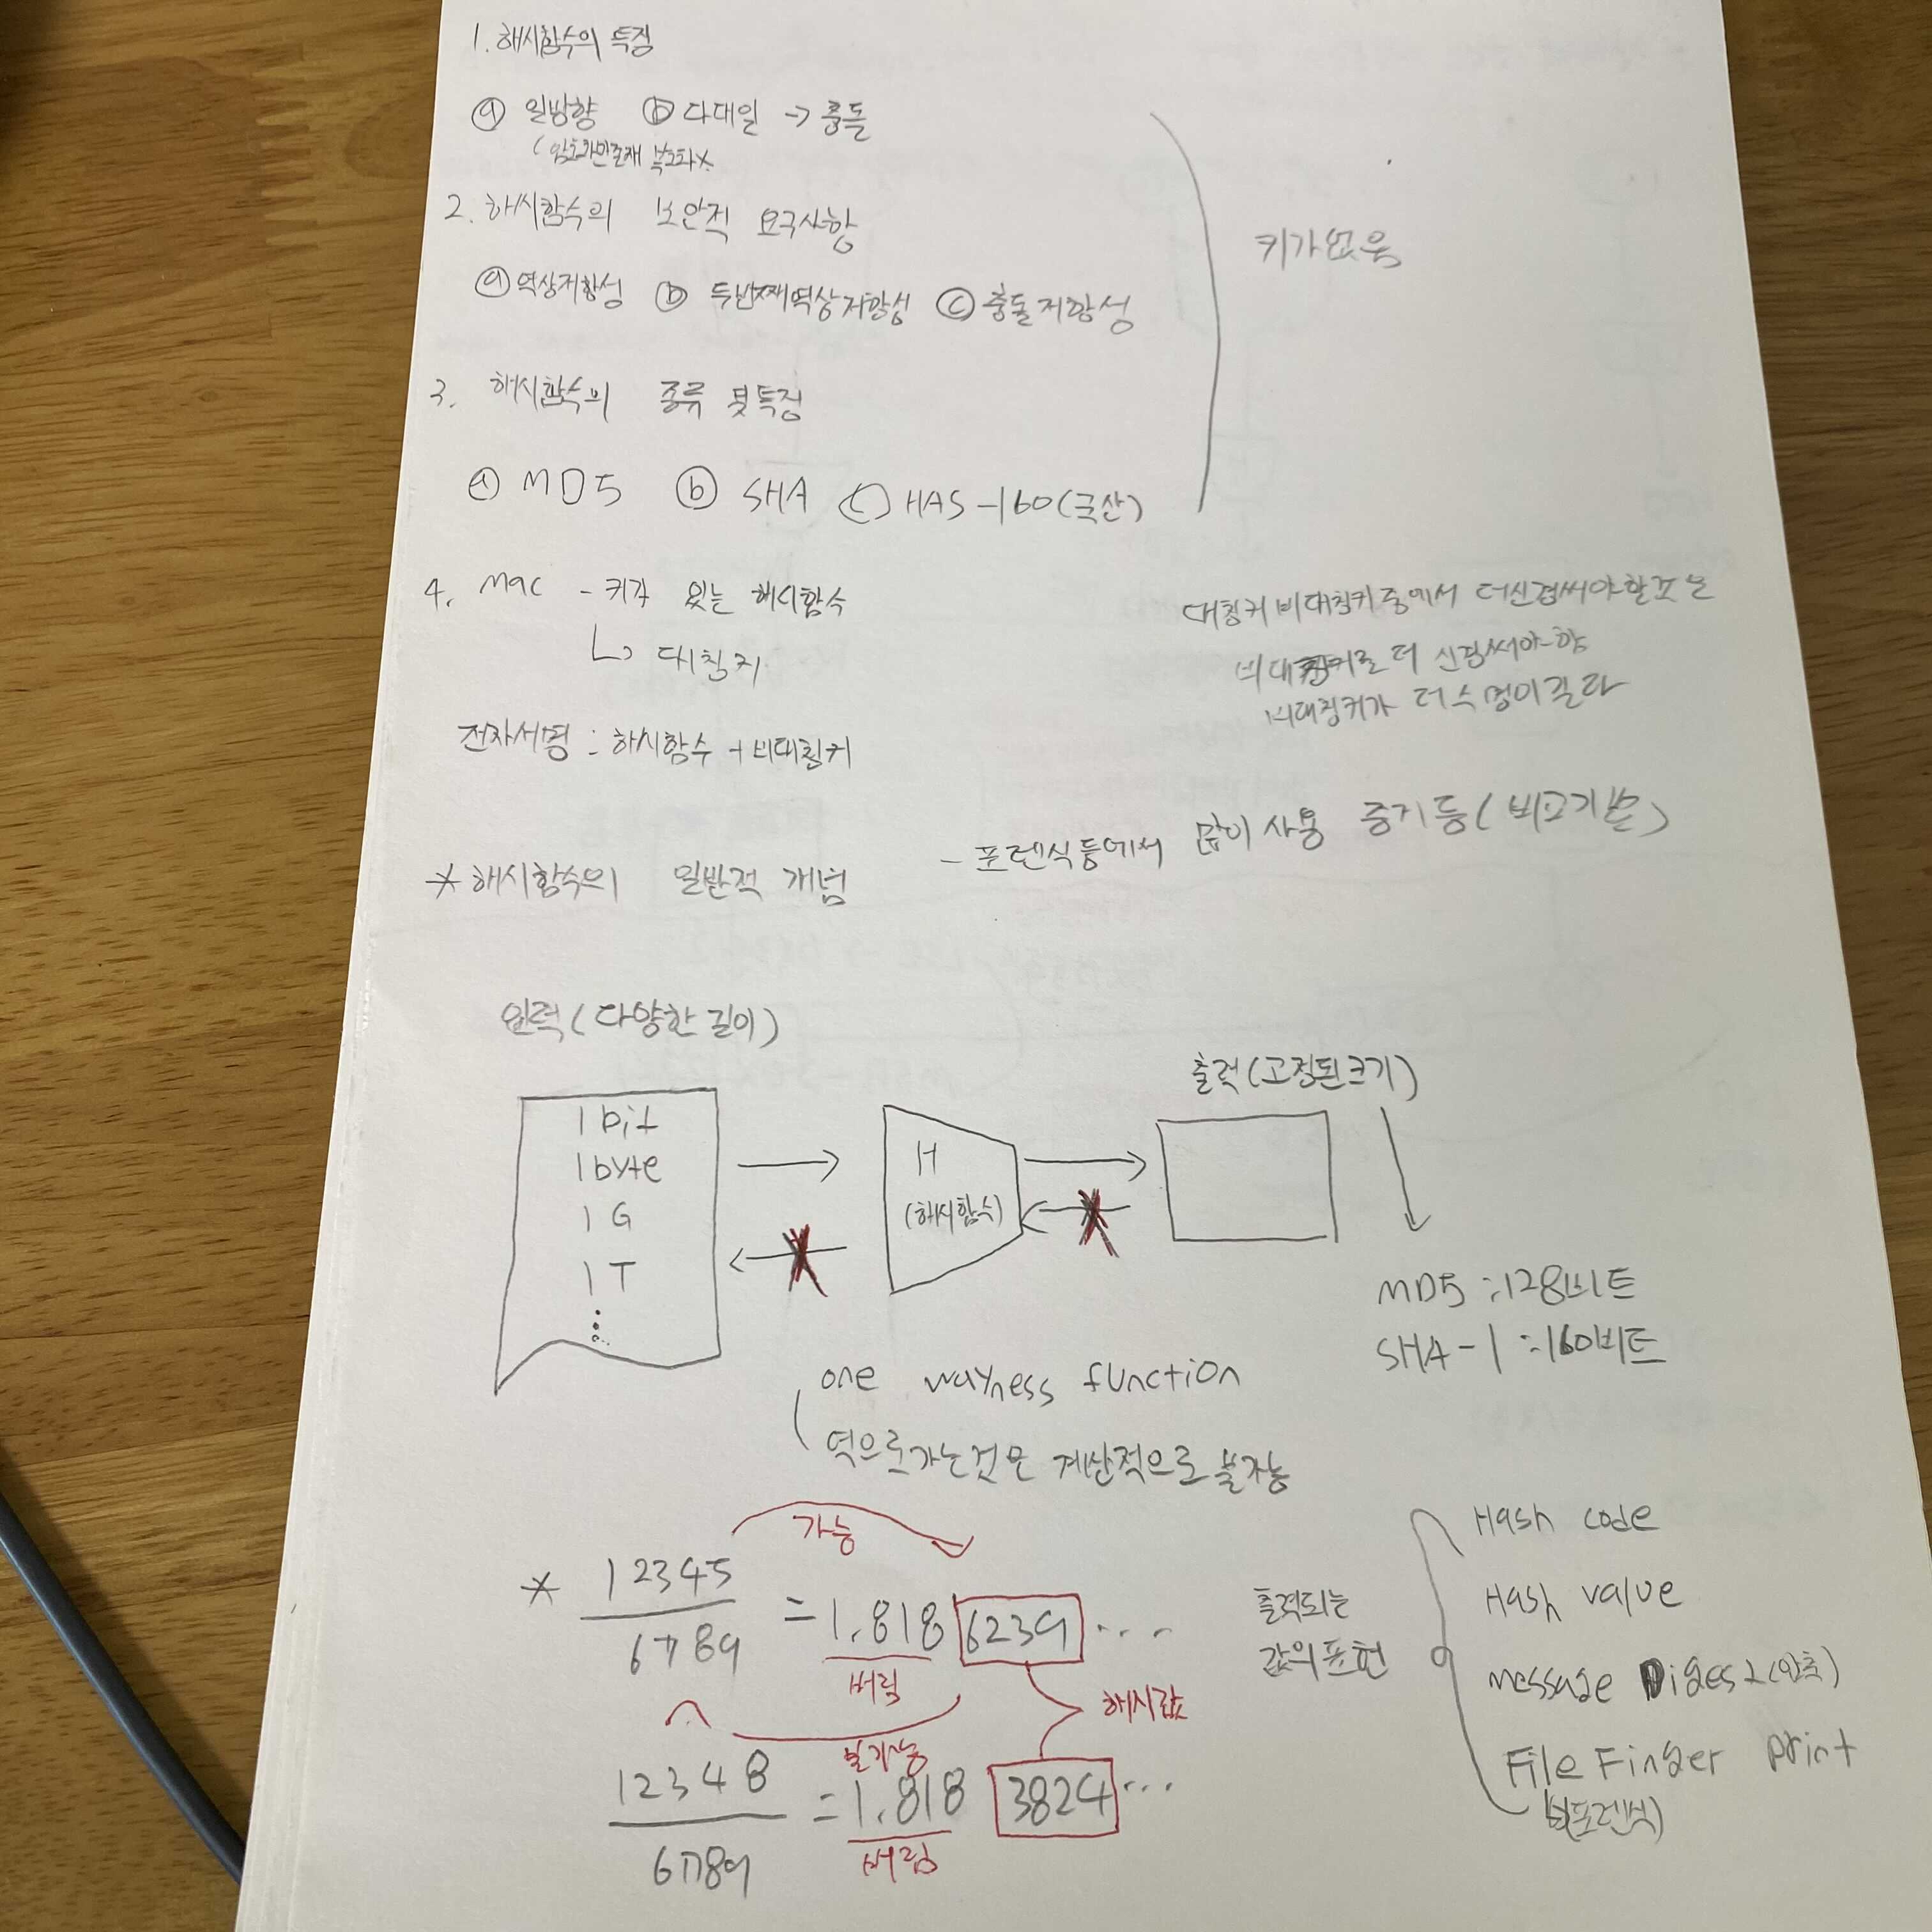 1. 해시함수의 특징
ⓐ 일방향 ⓑ 다대일 → 충돌
(암호화만존재 복호화X
2. 해시함수의 보안적 요구사항
키가없음
ⓐ 역상저항성 ⓑ 두번째역상저항성 ⓒ 충돌저항성
3. 해시함수의 종류 및 특징
ⓐ MD5 ⓑ SHA ⓒ HAS-160(국산)
4. Mac - 키가 있는 해시함수
↳ 대칭키
대칭키 비대칭키 중에서 더신경써야할 는
비대칭키로 더 신경써야함
비대칭키가 더 수명이길다
전자서명 : 해시함수 + 비대칭키
* 해시함수의 일반적 개념
- 포렌식등에서 많이 사용 증거등(비교기반)
입력(다양한 길이)
출력(고정된크기)
1 bit
1 byte
1 G
1 T
⋮
H
(해시함수)
MD5 : 128비트
SHA-1 : 160비트
one wayness function
역으로가는것은 계산적으로 불가능
가능
* 12345 / 6789 = 1.818 6239 ...
버림
불가능
해시값
12348 / 6789 = 1.818 3824 ...
버림
출력되는
값의표현
Hash code
Hash value
message Digest(압축)
File Finger print
(포렌식)